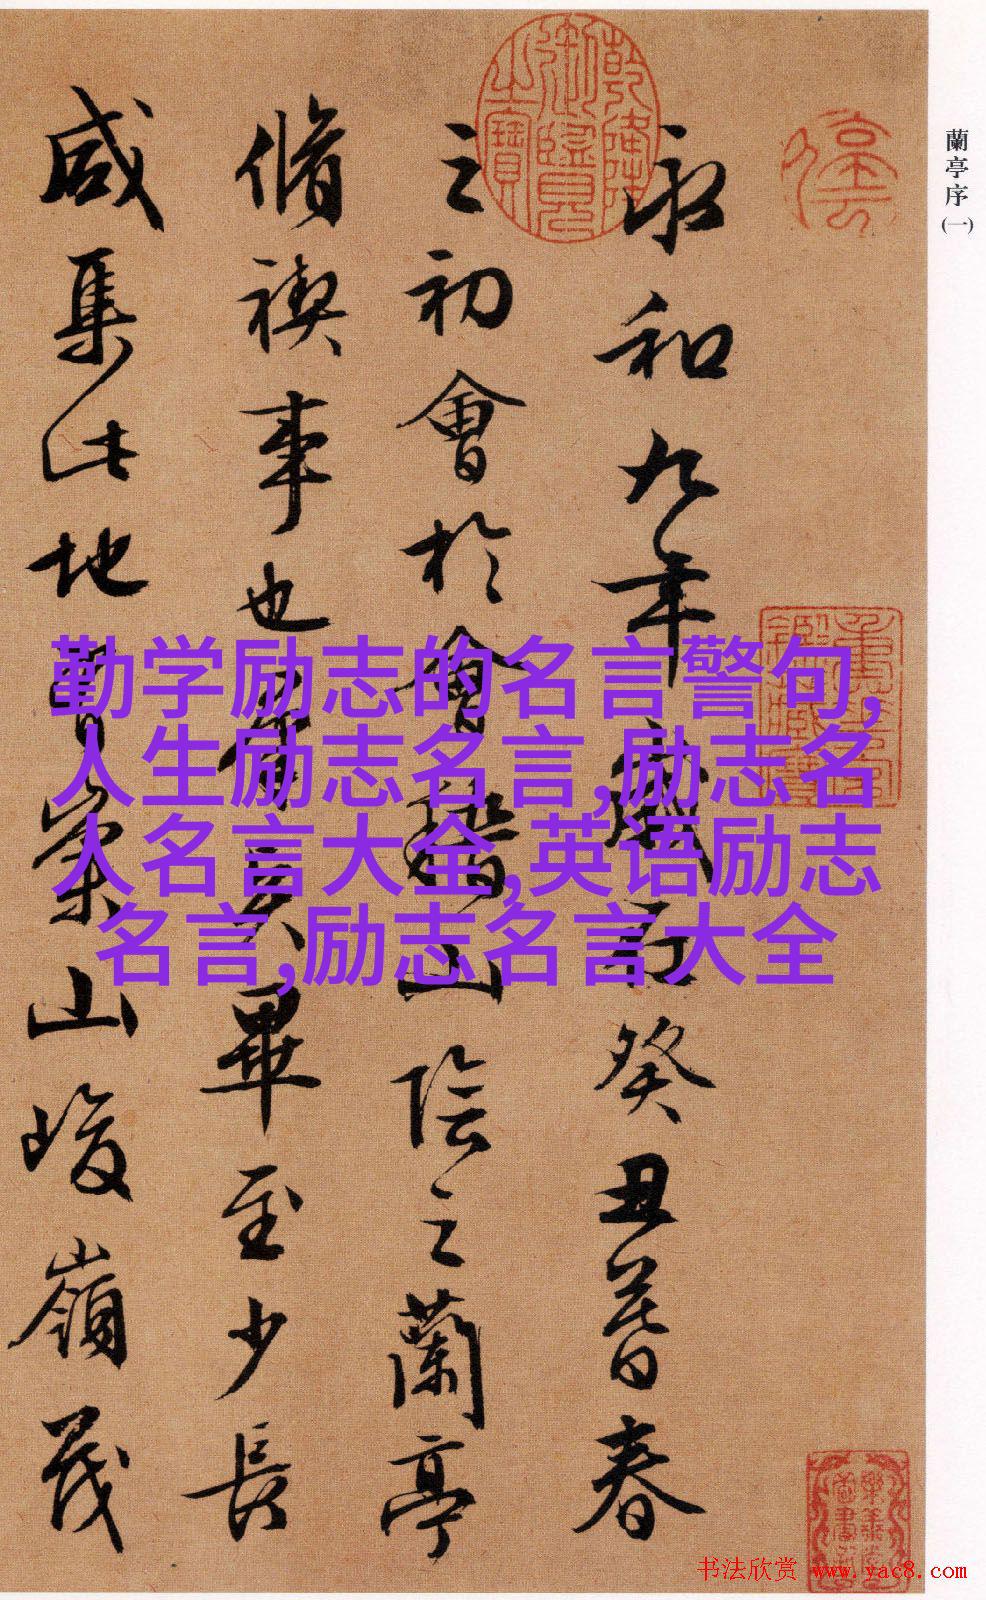 蘭亭序(一)
永和九年歲在癸丑暮春
之初會於會稽山陰之蘭亭
脩禊事也羣賢畢至少長
咸集此地有崇山峻嶺茂
乾隆御覽之寶
勤学励志的名言警句,
人生励志名言,励志名
人名言大全,英语励志
名言,励志名言大全
书法欣赏 www.yac8.com